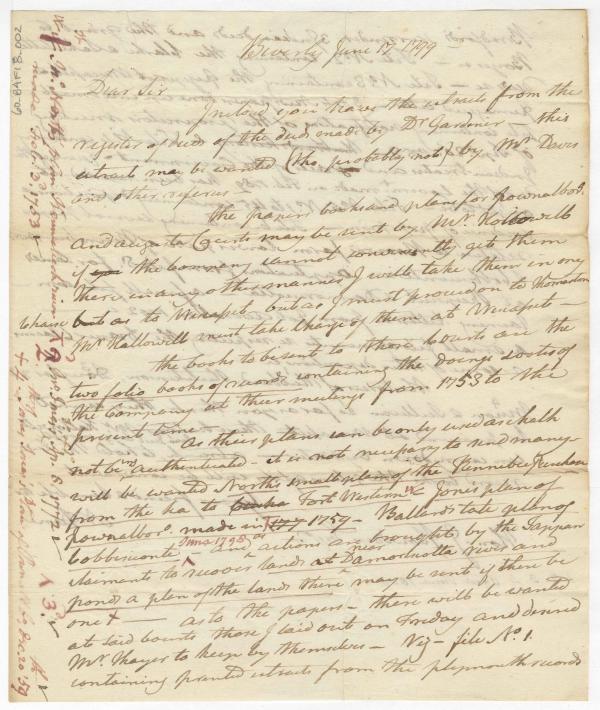 Beverly June 17 1799
Dear Sir
Inclosed you have the extracts from the
register of deeds of the deed made by Dr Gardiner — this
extract may be wanted (tho. probably not) by Mr Davis
and other referees —
the papers books and plans for pownalboro.
and augusta Courts may be sent by Mr. Hallowell
if you the Company cannot conveniently get them
there in any other manner, I will take them in my
Chaise but as to Wiscasset but as I must proceed on to Thomaston
Mr Hallowell must take charge of them at Wiscasset —
the books to be sent to those Courts are the
two folio books of records containing the doings & votes of
the Company at their meetings from 1753 to the
present time —
As their plans can be only used as chalk
not being authenticated — it is not necessary to send many
will be wanted North's small plan of the Kennebec
from the sea to Fort Western — Jones's plan of
pownalboro. made in 1759 — Ballard's late plan of
Cobbiseconte June 1795 and as actions are brought by the Tappan
claimants to recover lands at near Damariscotta river and
ponds a plan of the lands there may be sent if there be
one + — as to the papers — there will be wanted
at said Courts those I laid out on Friday and desired
Mr. Thayer to keep by themselves — Viz — file No. 1.
containing printed extracts from the plymouth records
60-BAFIB-002